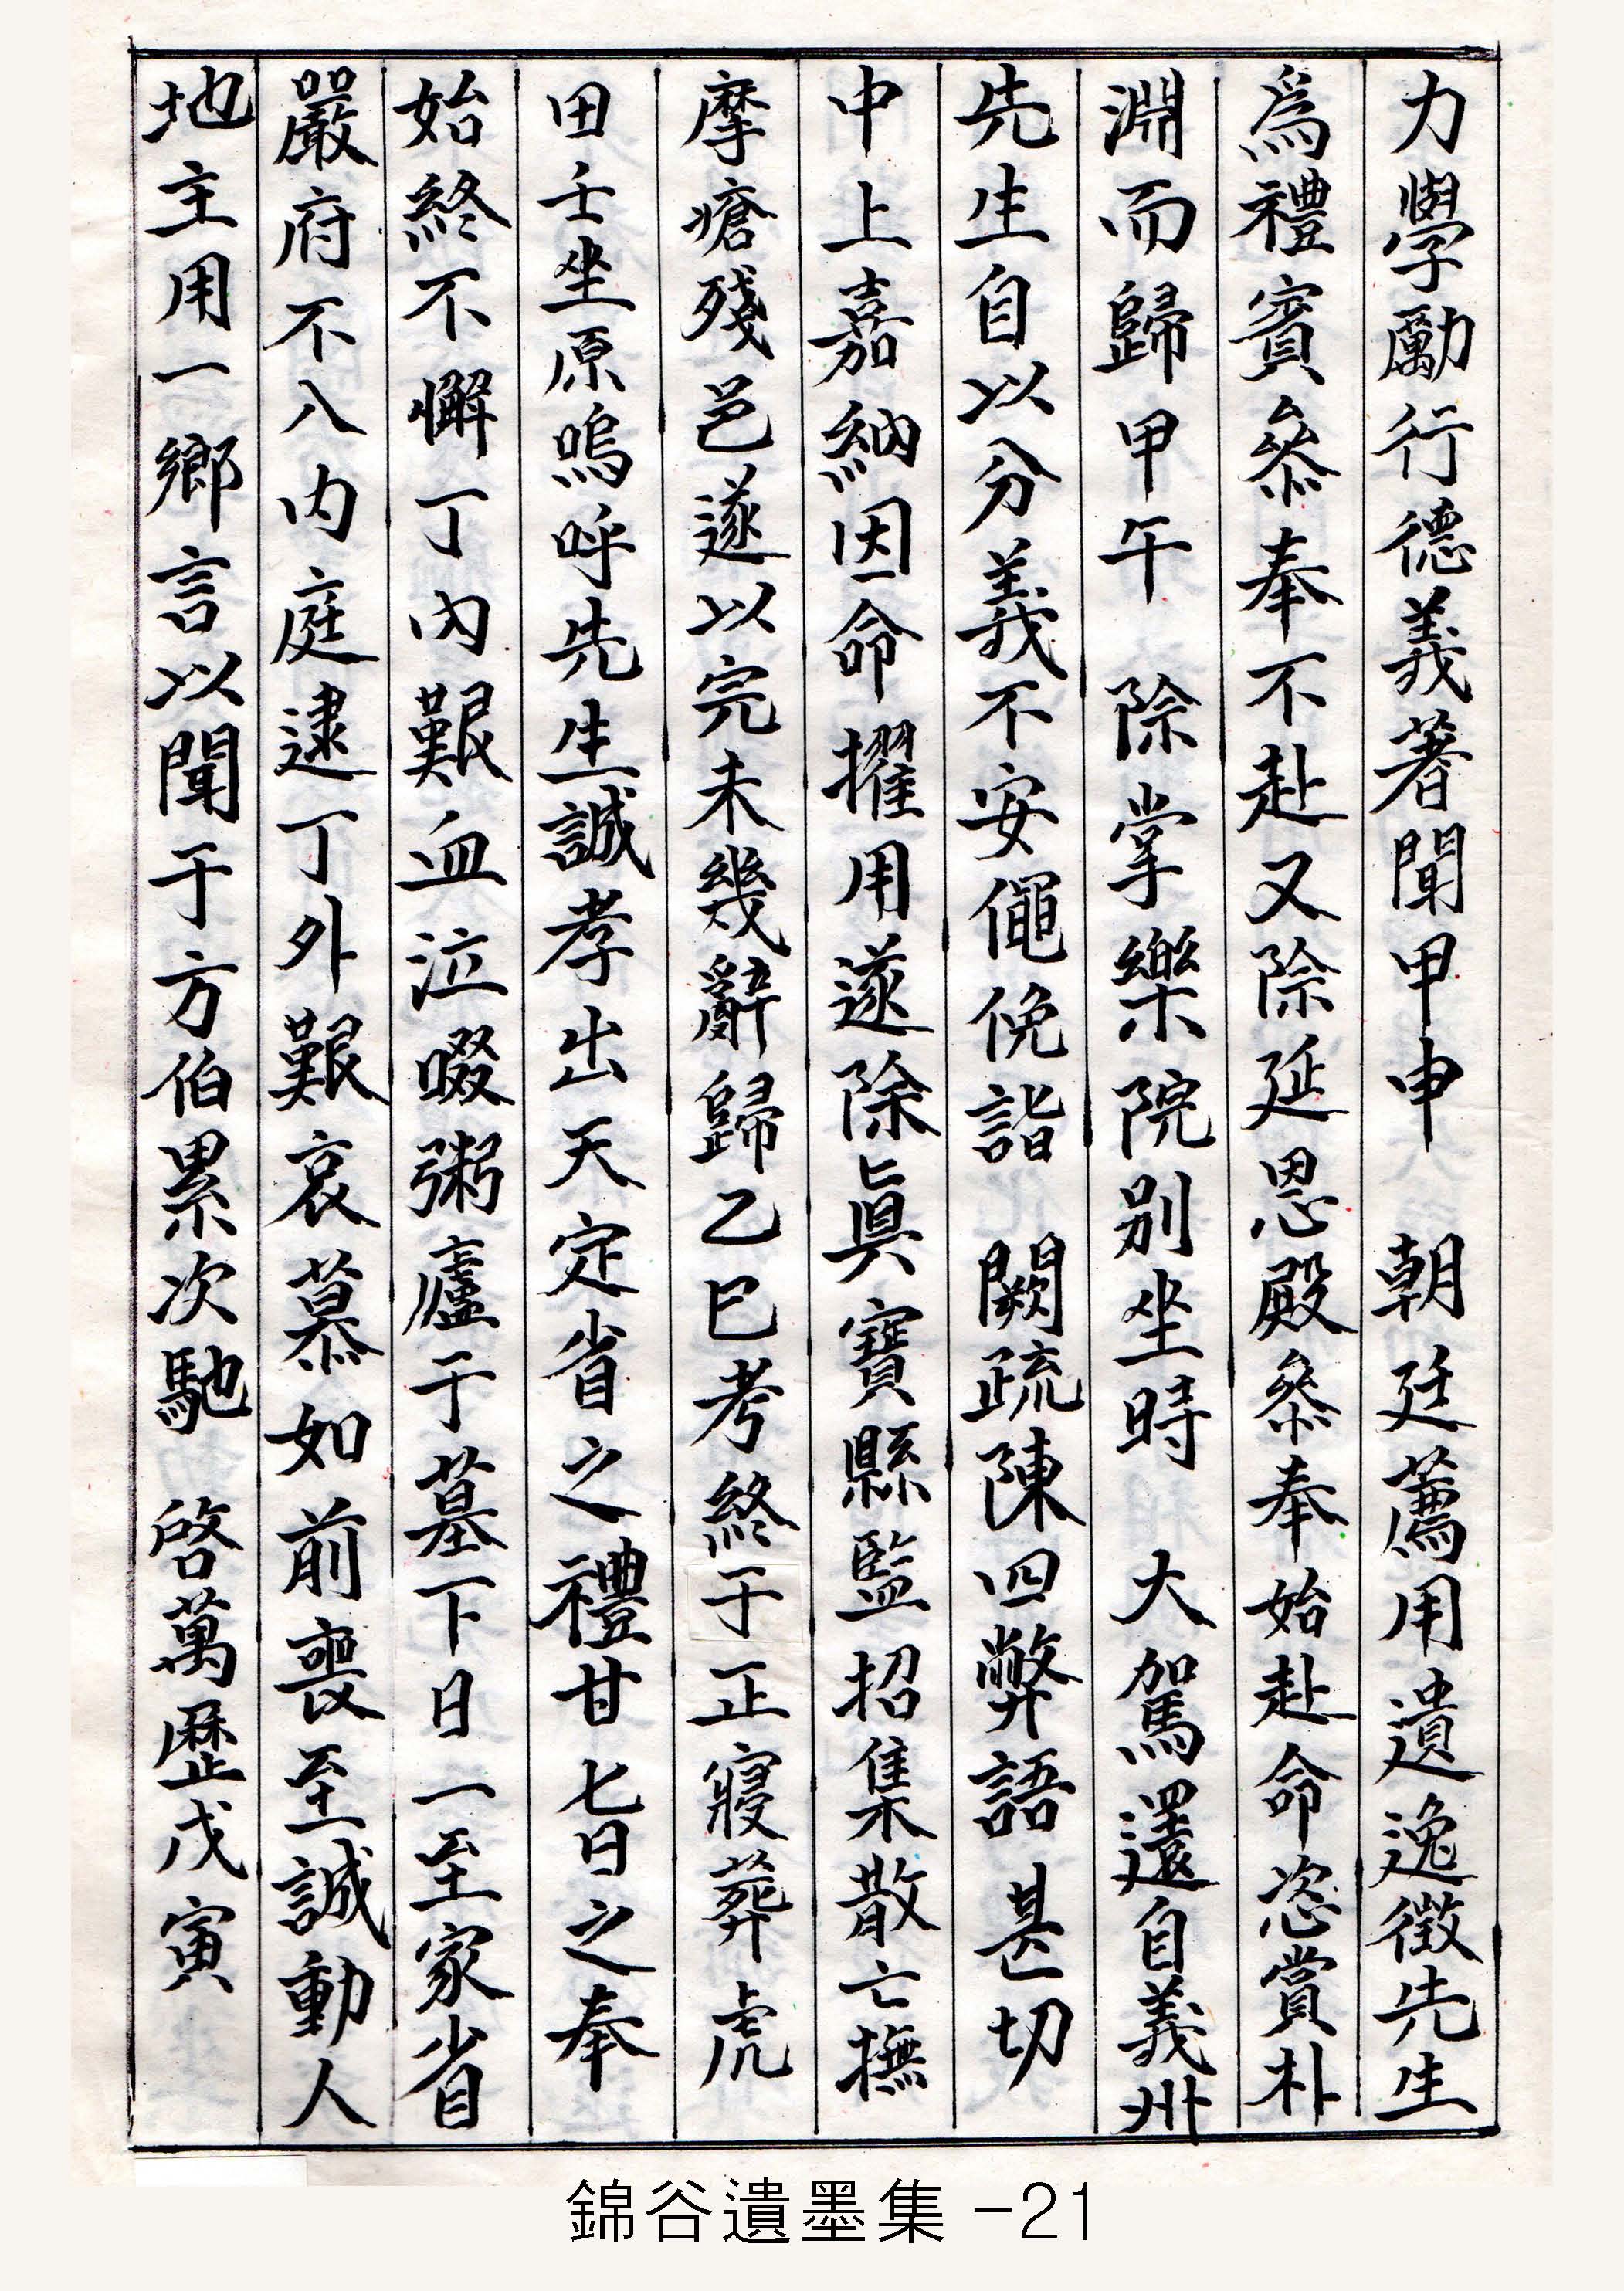 力學勵行德義著聞甲申 朝廷薦用遺逸徵先生
爲禮賓叅奉不赴又除延恩殿叅奉始赴命恣賞朴
淵而歸甲午 除掌樂院別坐時 大駕還自義州
先生自以分義不安僶俛詣 闕疏陳四弊語甚切
中上嘉納因命擢用遂除眞寶縣監招集散亡撫
摩瘡殘邑遂以完未幾辭歸乙巳考終于正寢葬虎
田壬坐原嗚呼先生誠孝出天定省之禮甘旨之奉
始終不懈丁內艱血泣啜粥廬于墓下日一至家省
嚴府不入內庭逮丁外艱哀慕如前喪至誠動人
地主用一鄉言以聞于方伯累次馳 啓萬歷戊寅
錦谷遺墨集 -21